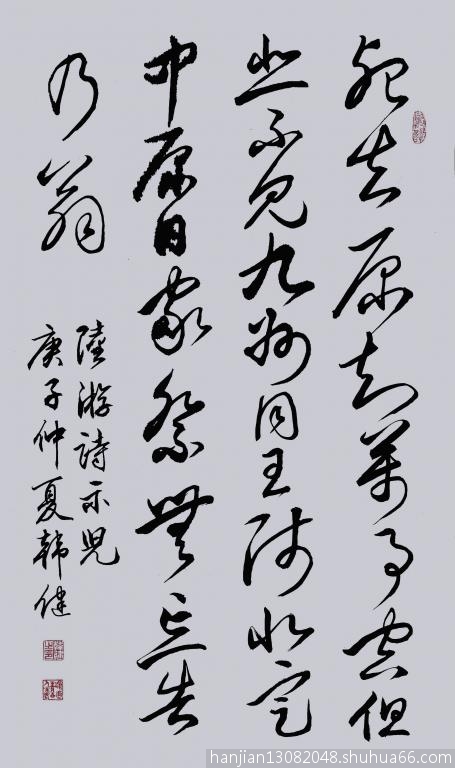 死去原知萬事空但
悲不見九州同王師北定
中原日家祭無忘告
乃翁
陸游詩示兒
庚子仲夏韓健
hanjian13082048.shuhua66.com